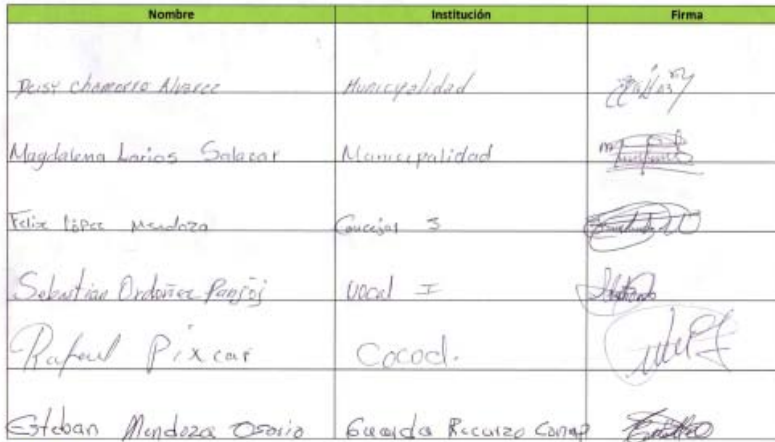 Nombre Institución Firma
Deisy Chamorro Alvarez Municipalidad
Magdalena Larios Salazar Municipalidad
Felix López Mendoza Concejal 3
Sebastian Ordoñez Panjoj Vocal I
Rafael Pixcar Cocod.
Esteban Mendoza Osorio Guarda Recurzo Conap